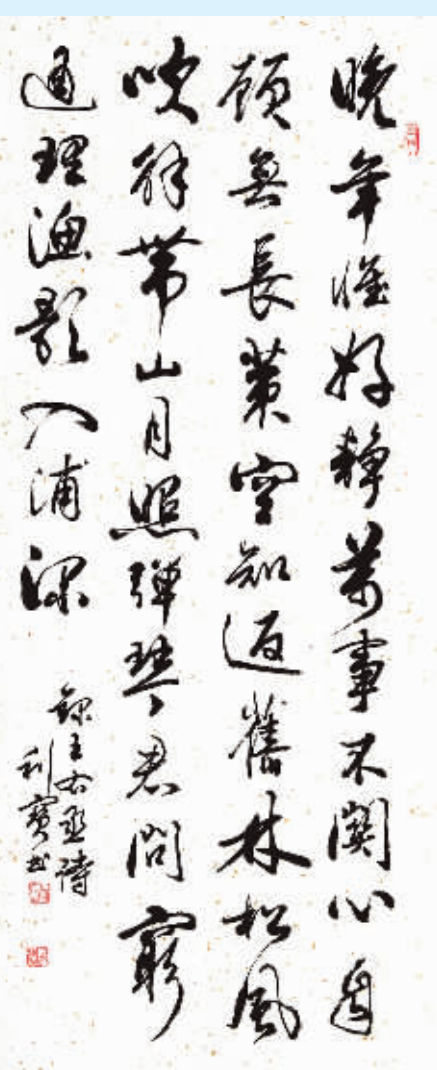 晚年惟好靜萬事不關心自
顧無長策空知返舊林松風
吹解帶山月照彈琴君問窮
通理漁影入浦深
錄王右丞詩
利寳书